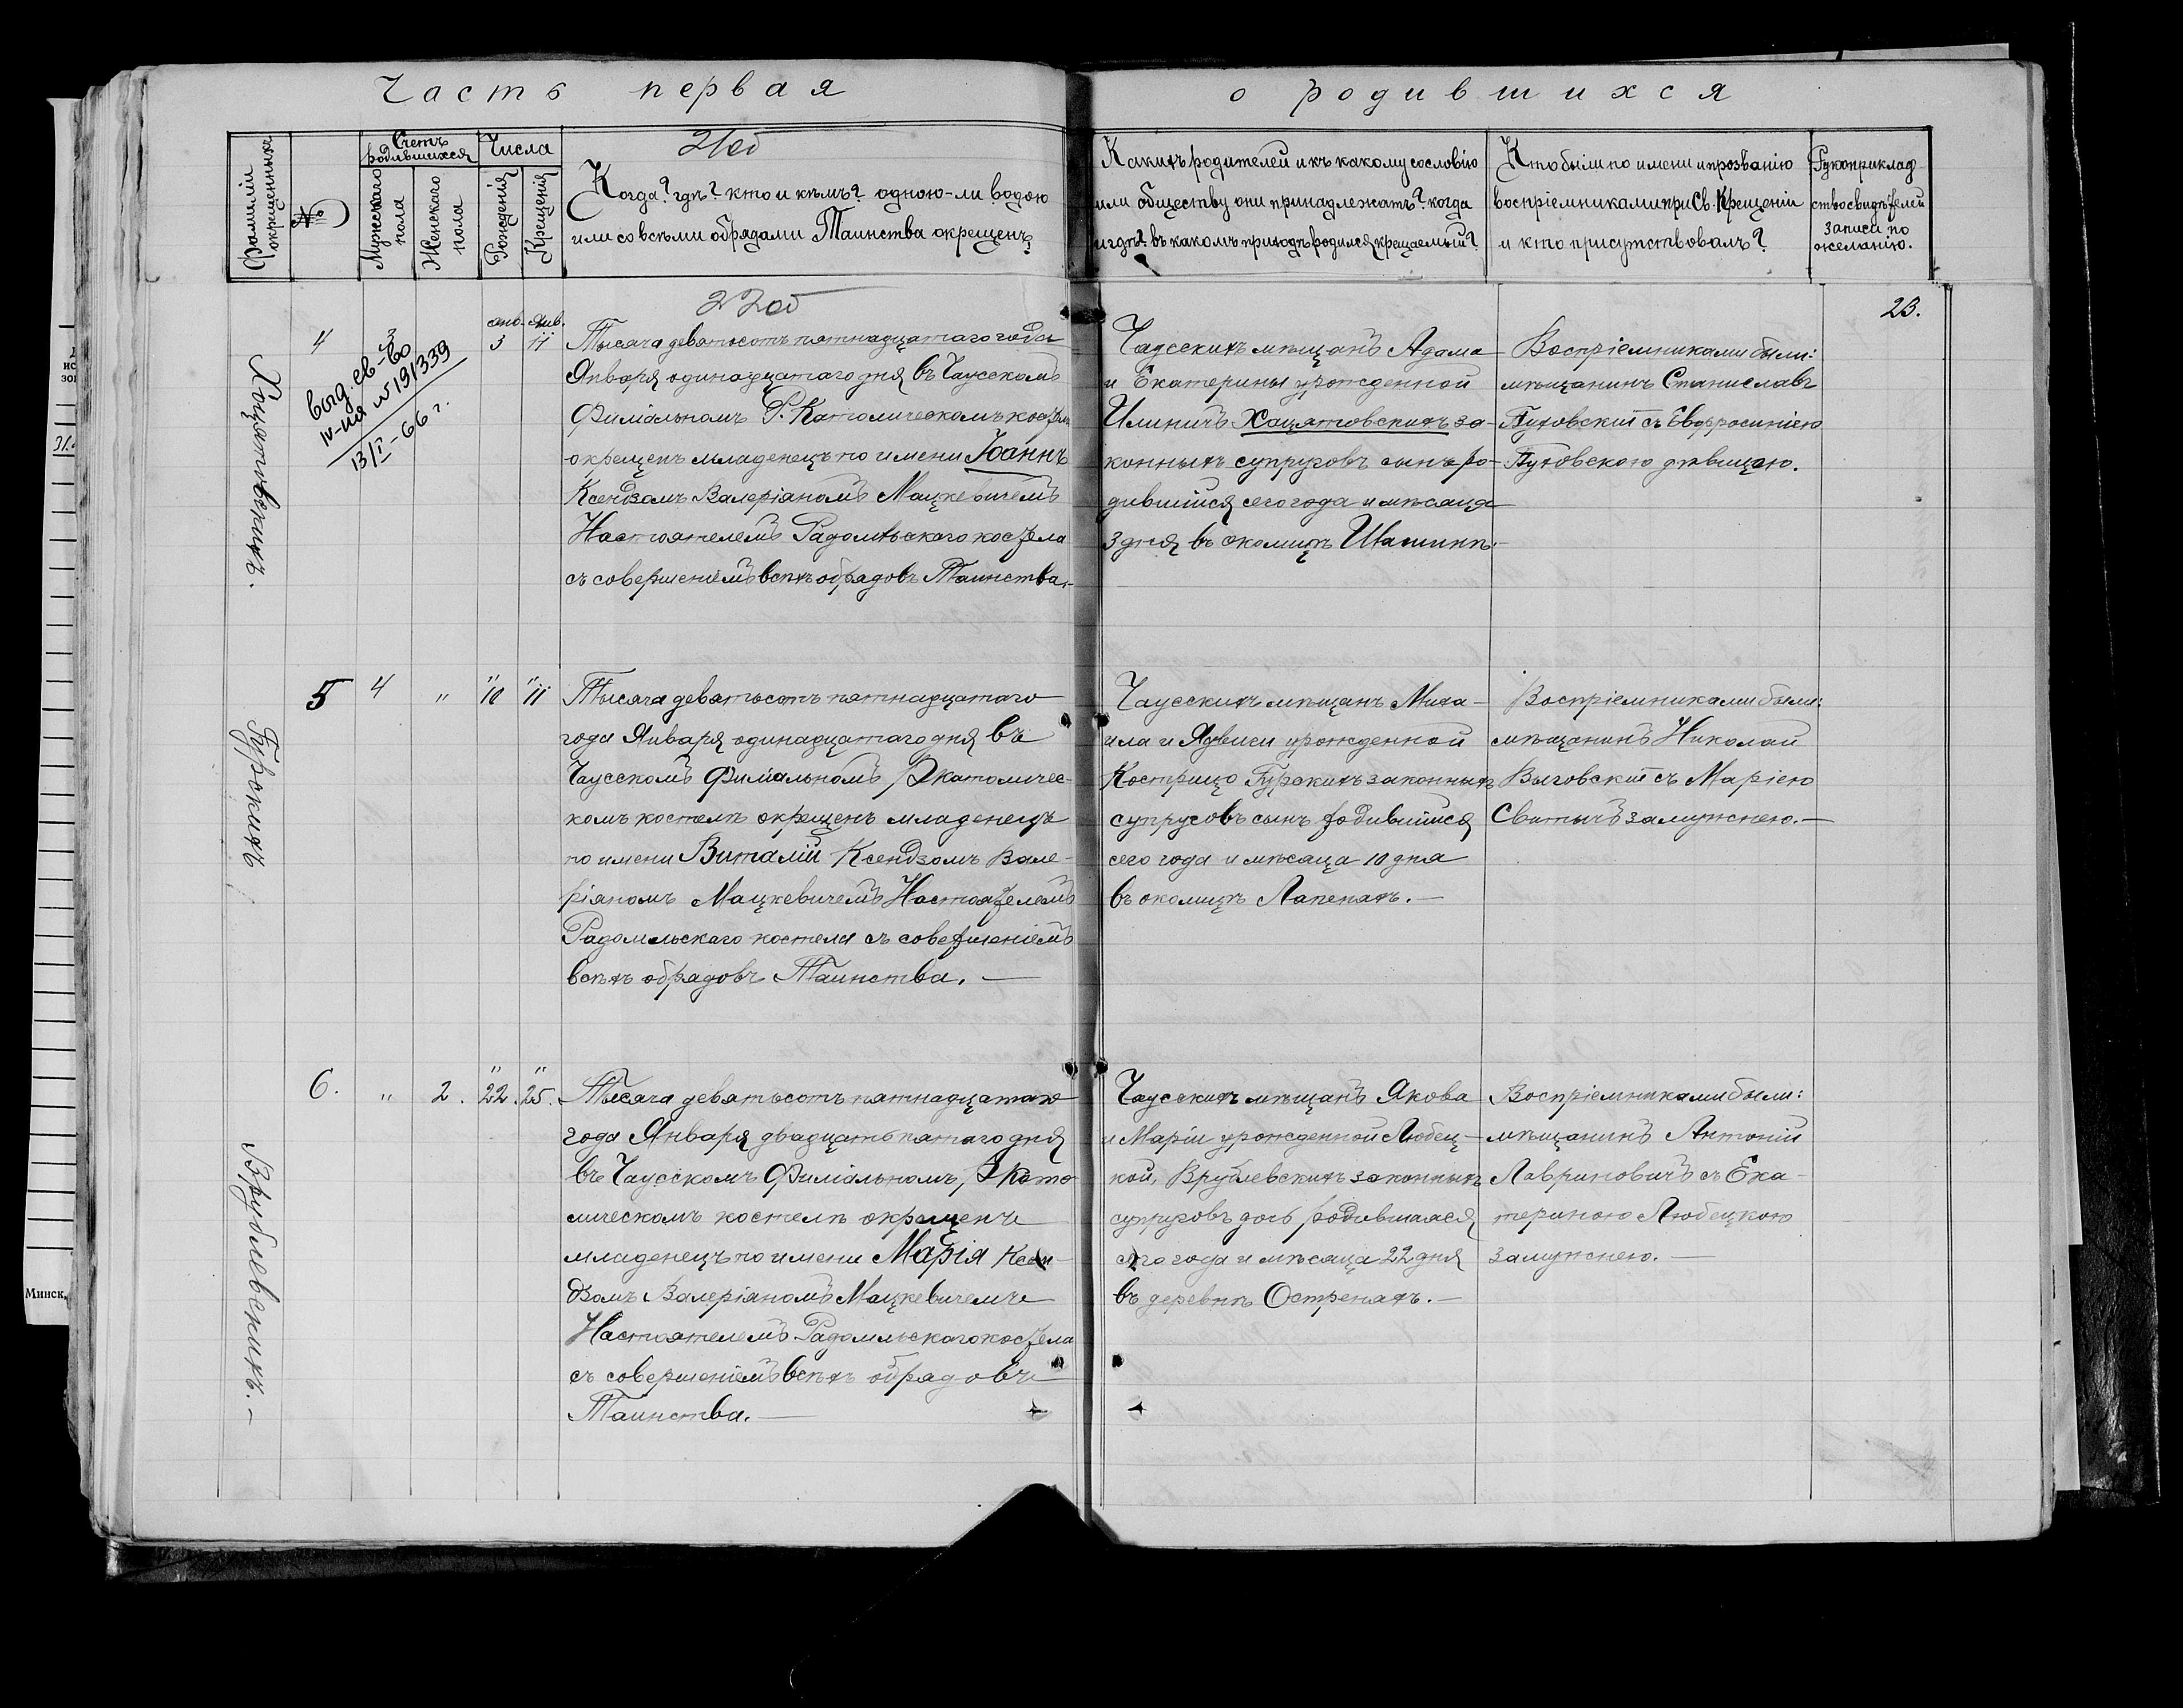 Часть первая
о родившихся
Фамиліи окрещенныхъ
№
Счетъ родившихся
Мужескаго пола
Женскаго пола
Числа
Рожденія
Крещенія
Когда? гдѣ? кто и кѣмъ? одною-ли водою
или со всѣми обрядами Таинства окрещенъ?
Какихъ родителей и къ какому сословію
или обществу они принадлежатъ? когда
и гдѣ? въ какомъ приходѣ родился крещаемый?
Кто были по имени и прозванію
воспріемниками при Св. Крещеніи
и кто присутствовалъ?
Рукоприклад-
ство свидѣтелей
записи по
желанію.
23.
Хоцятовскихъ.
4
3
янв. янв.
3 11
выд. св-во
IV-ИЯ № 191339
13/I-66 г.
Тысяча девятьсотъ пятнадцатаго года
Января одинадцатаго дня въ Чаусскомъ
Филіальномъ Р. Католическомъ костелѣ
окрещенъ младенецъ по имени Іоаннъ
Ксендзомъ Валеріаномъ Мацкевичемъ
Настоятелемъ Радомльскаго костела
съ совершеніемъ всѣхъ обрядовъ Таинства.-
Чаусскихъ мѣщанъ Адама
и Екатерины урожденной
Илиничъ Хацятовскихъ за-
конныхъ супруговъ сынъ ро-
дившійся сего года и мѣсяца
3 дня въ околицѣ Шашинѣ.-
Воспріемниками были:
мѣщанинъ Станиславъ
Путовскій съ Евфросиніею
Путовскою дѣвицею.
Гурскихъ
5 4 " " 10 " 11
Тысяча девятьсотъ пятнадцатаго
года Января одинадцатаго дня въ
Чаусскомъ Филіальномъ Р Католичес-
комъ костелѣ окрещенъ младенецъ
по имени Виталій Ксендзомъ Вале-
ріаномъ Мацкевичемъ Настоятелемъ
Радомльскаго костела съ совершеніемъ
всѣхъ обрядовъ Таинства. —
Чаусскихъ мѣщанъ Миха-
ила и Ядвиги урожденной
Кострицо Гурскихъ законныхъ
супруговъ сынъ родившійся
сего года и мѣсяца 10 дня
въ околицѣ Лапенахъ. —
Воспріемниками были:
мѣщанинъ Николай
Выговскій съ Маріею
Святычъ замужнею. —
Врублевскихъ. —
6. " 2. " 22. " 25.
Тысяча девятьсотъ пятнадцатаго
года Января двадцать пятаго дня
въ Чаусскомъ Филіальномъ Р Като-
лическомъ костелѣ окрещенъ
младенецъ по имени Марія Ксен-
дзомъ Валеріаномъ Мацкевичемъ
Настоятелемъ Радомльскаго костела
съ совершеніемъ всѣхъ обрядовъ
Таинства. —
Чаусскихъ мѣщанъ Якова
и Маріи урожденной Любец-
кой, Врублевскихъ законныхъ
супруговъ дочь родившаяся
сего года и мѣсяца 22 дня
въ деревнѣ Остренахъ. —
Воспріемниками были:
мѣщанинъ Антоній
Лавриновичъ съ Ека-
териною Любецкою
замужнею. —
Минск,